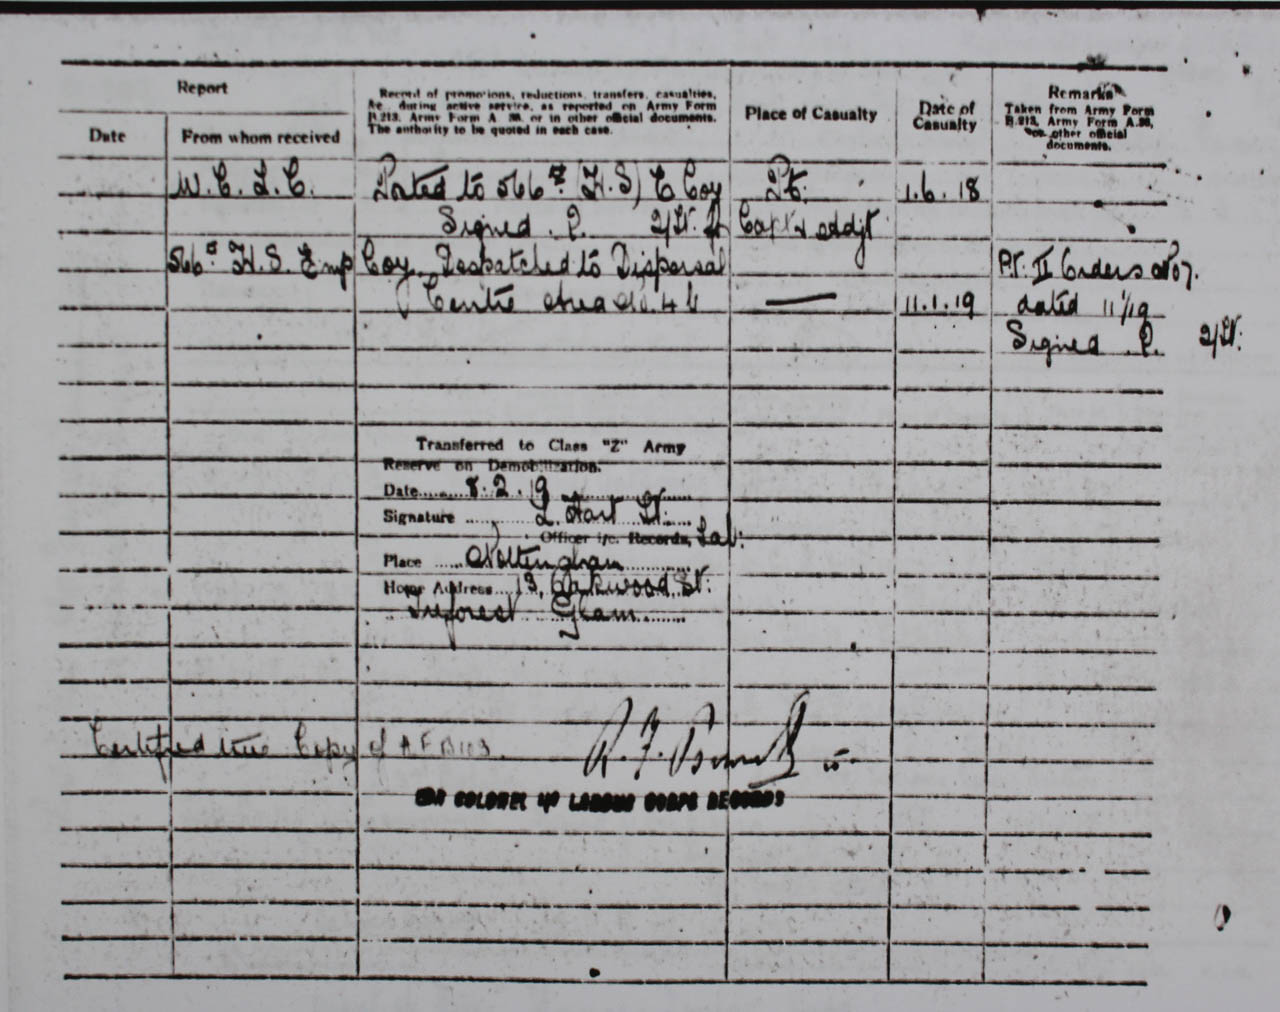 Report
Record of promotions, reductions, transfers, casualties,
&c., during active service, as reported on Army Form
B.213, Army Form A 36, or in other official documents.
The authority to be quoted in each case.
Place of Casualty
Date of
Casualty
Remarks
Taken from Army Form
B.213, Army Form A.36,
or other official
documents.
Date
From whom received
W. C. L. C. Posted to 566 (H.S) E Coy Pt. 1.6.18
Signed . P. 2/Lt. Capt & Adjt
566 H.S. Emp Coy Despatched to Dispersal Pt. II Orders No 7.
Centre Area No. 4 11.1.19 dated 11/1/19
Signed P. 2/Lt.
Transferred to Class "Z" Army
Reserve on Demobilization.
Date 8.2.19
Signature L. Hart Lt.
Officer i/c. Records, Lab.
Place Nottingham
Home Address 13, Oakwood St.
Treforest Glam
Certified true Copy of A F B103
R. F.
FOR COLONEL I/C LABOUR CORPS RECORDS